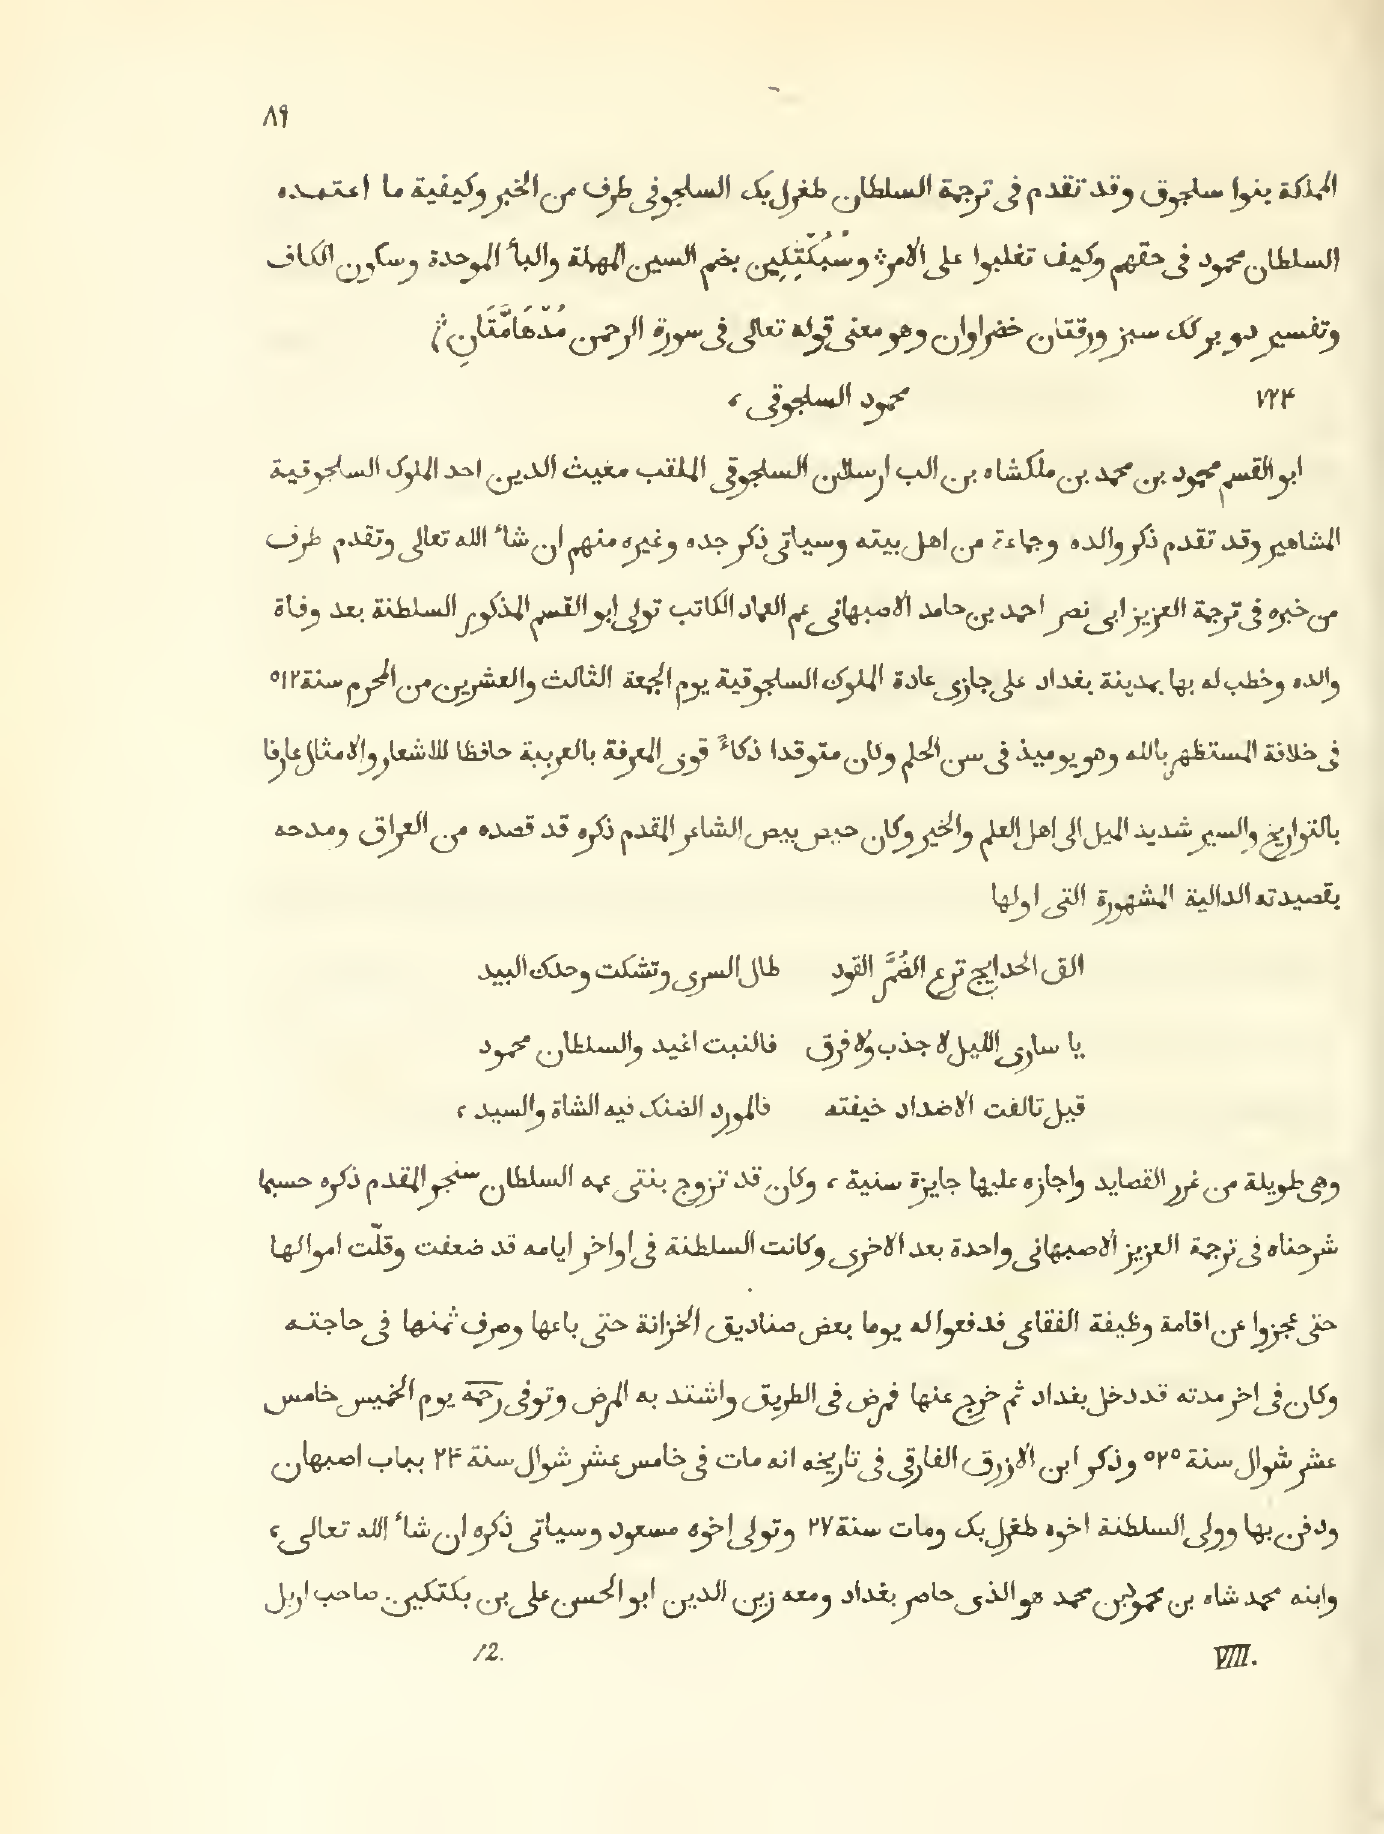 ٨٩
المملكة بنوا سلجوق وقد تقدم فى ترجمة السلطان طغرل بك السلجوقى طرف من الخبر وكيفية ما اعتمده
السلطان محمود فى حقهم وكيف تغلبوا على الامر ۞ وسُبُكْتِكِين بضم السين المهملة والبأ الموحدة وسكون الكاف
وتفسير دو برك سبز ورقتان خضراوان وهو معنى قوله تعالى فى سورة الرحمن مُدْهَامَّتَانِ ۞
٧٢۴ محمود السلجوقى ،
ابو القسم محمود بن محمد بن ملكشاه بن الب ارسلان السلجوقى الملقب مغيث الدين احد الملوك السلجوقية
المشاهير وقد تقدم ذكر والده وجماعة من اهل بيته وسياتى ذكر جده وغيره منهم ان شأ الله تعالى وتقدم طرف
من خبره فى ترجمة العزيز ابى نصر احمد بن حامد الاصبهانى عم العماد الكاتب تولى ابو القسم المذكور السلطنة بعد وفاة
والده وخطب له بها بمدينة بغداد على جازى عادة الملوك السلجوقية يوم الجمعة الثالث والعشرين من المحرم سنة ٥١٢
فى خلافة المستظهر بالله وهو يوميذ فى سن الحلم وكان متوقدا ذكاءً قوى المعرفة بالعربية حافظا للاشعار والامثال عارفا
بالتواريخ والسير شديد الميل الى اهل العلم والخير وكان حيص بيص الشاعر المقدم ذكره قد قصده من العراق ومدحه
بقصيدته الدالية المشهورة التى اولها
الق الحدايج ترع الضُمَّر القود طال السرى وتشكت وخدك البيد
يا سارى الليل لا جذب ولا فرق فالنبت اغيد والسلطان محمود
قيل تالفت الاضداد خيفته فالمورد الضنك فيه الشاة والسيد ،
وهى طويلة من غرر القصايد واجازه عليها جايزة سنية ، وكان قد تزوج بنتى عمه السلطان سنجر المقدم ذكره حسبما
شرحناه فى ترجمة العزيز الاصبهانى واحدة بعد الاخرى وكانت السلطنة فى اواخر ايامه قد ضعفت وقلّت اموالها
حتى عجزوا عن اقامة وظيفة الفقاعى فدفعوا له يوما بعض صناديق الخزانة حتى باعها وصرف ثمنها فى حاجته
وكان فى اخر مدته قد دخل بغداد ثم خرج عنها فمرض فى الطريق واشتد به المرض وتوفى رحمه يوم الخميس خامس
عشر شوال سنة ٥٢٥ وذكر ابن الازرق الفارقى فى تاريخه انه مات فى خامس عشر شوال سنة ٢۴ بباب اصبهان
ودفن بها وولى السلطنة اخوه طغرل بك ومات سنة ٢٧ وتولى اخوه مسعود وسياتى ذكره ان شأ الله تعالى ،
وابنه محمد شاه بن محمود بن محمد هو الذى حاصر بغداد ومعه زين الدين ابو الحسن على بن بكتكين صاحب اربل
VIII. 12.